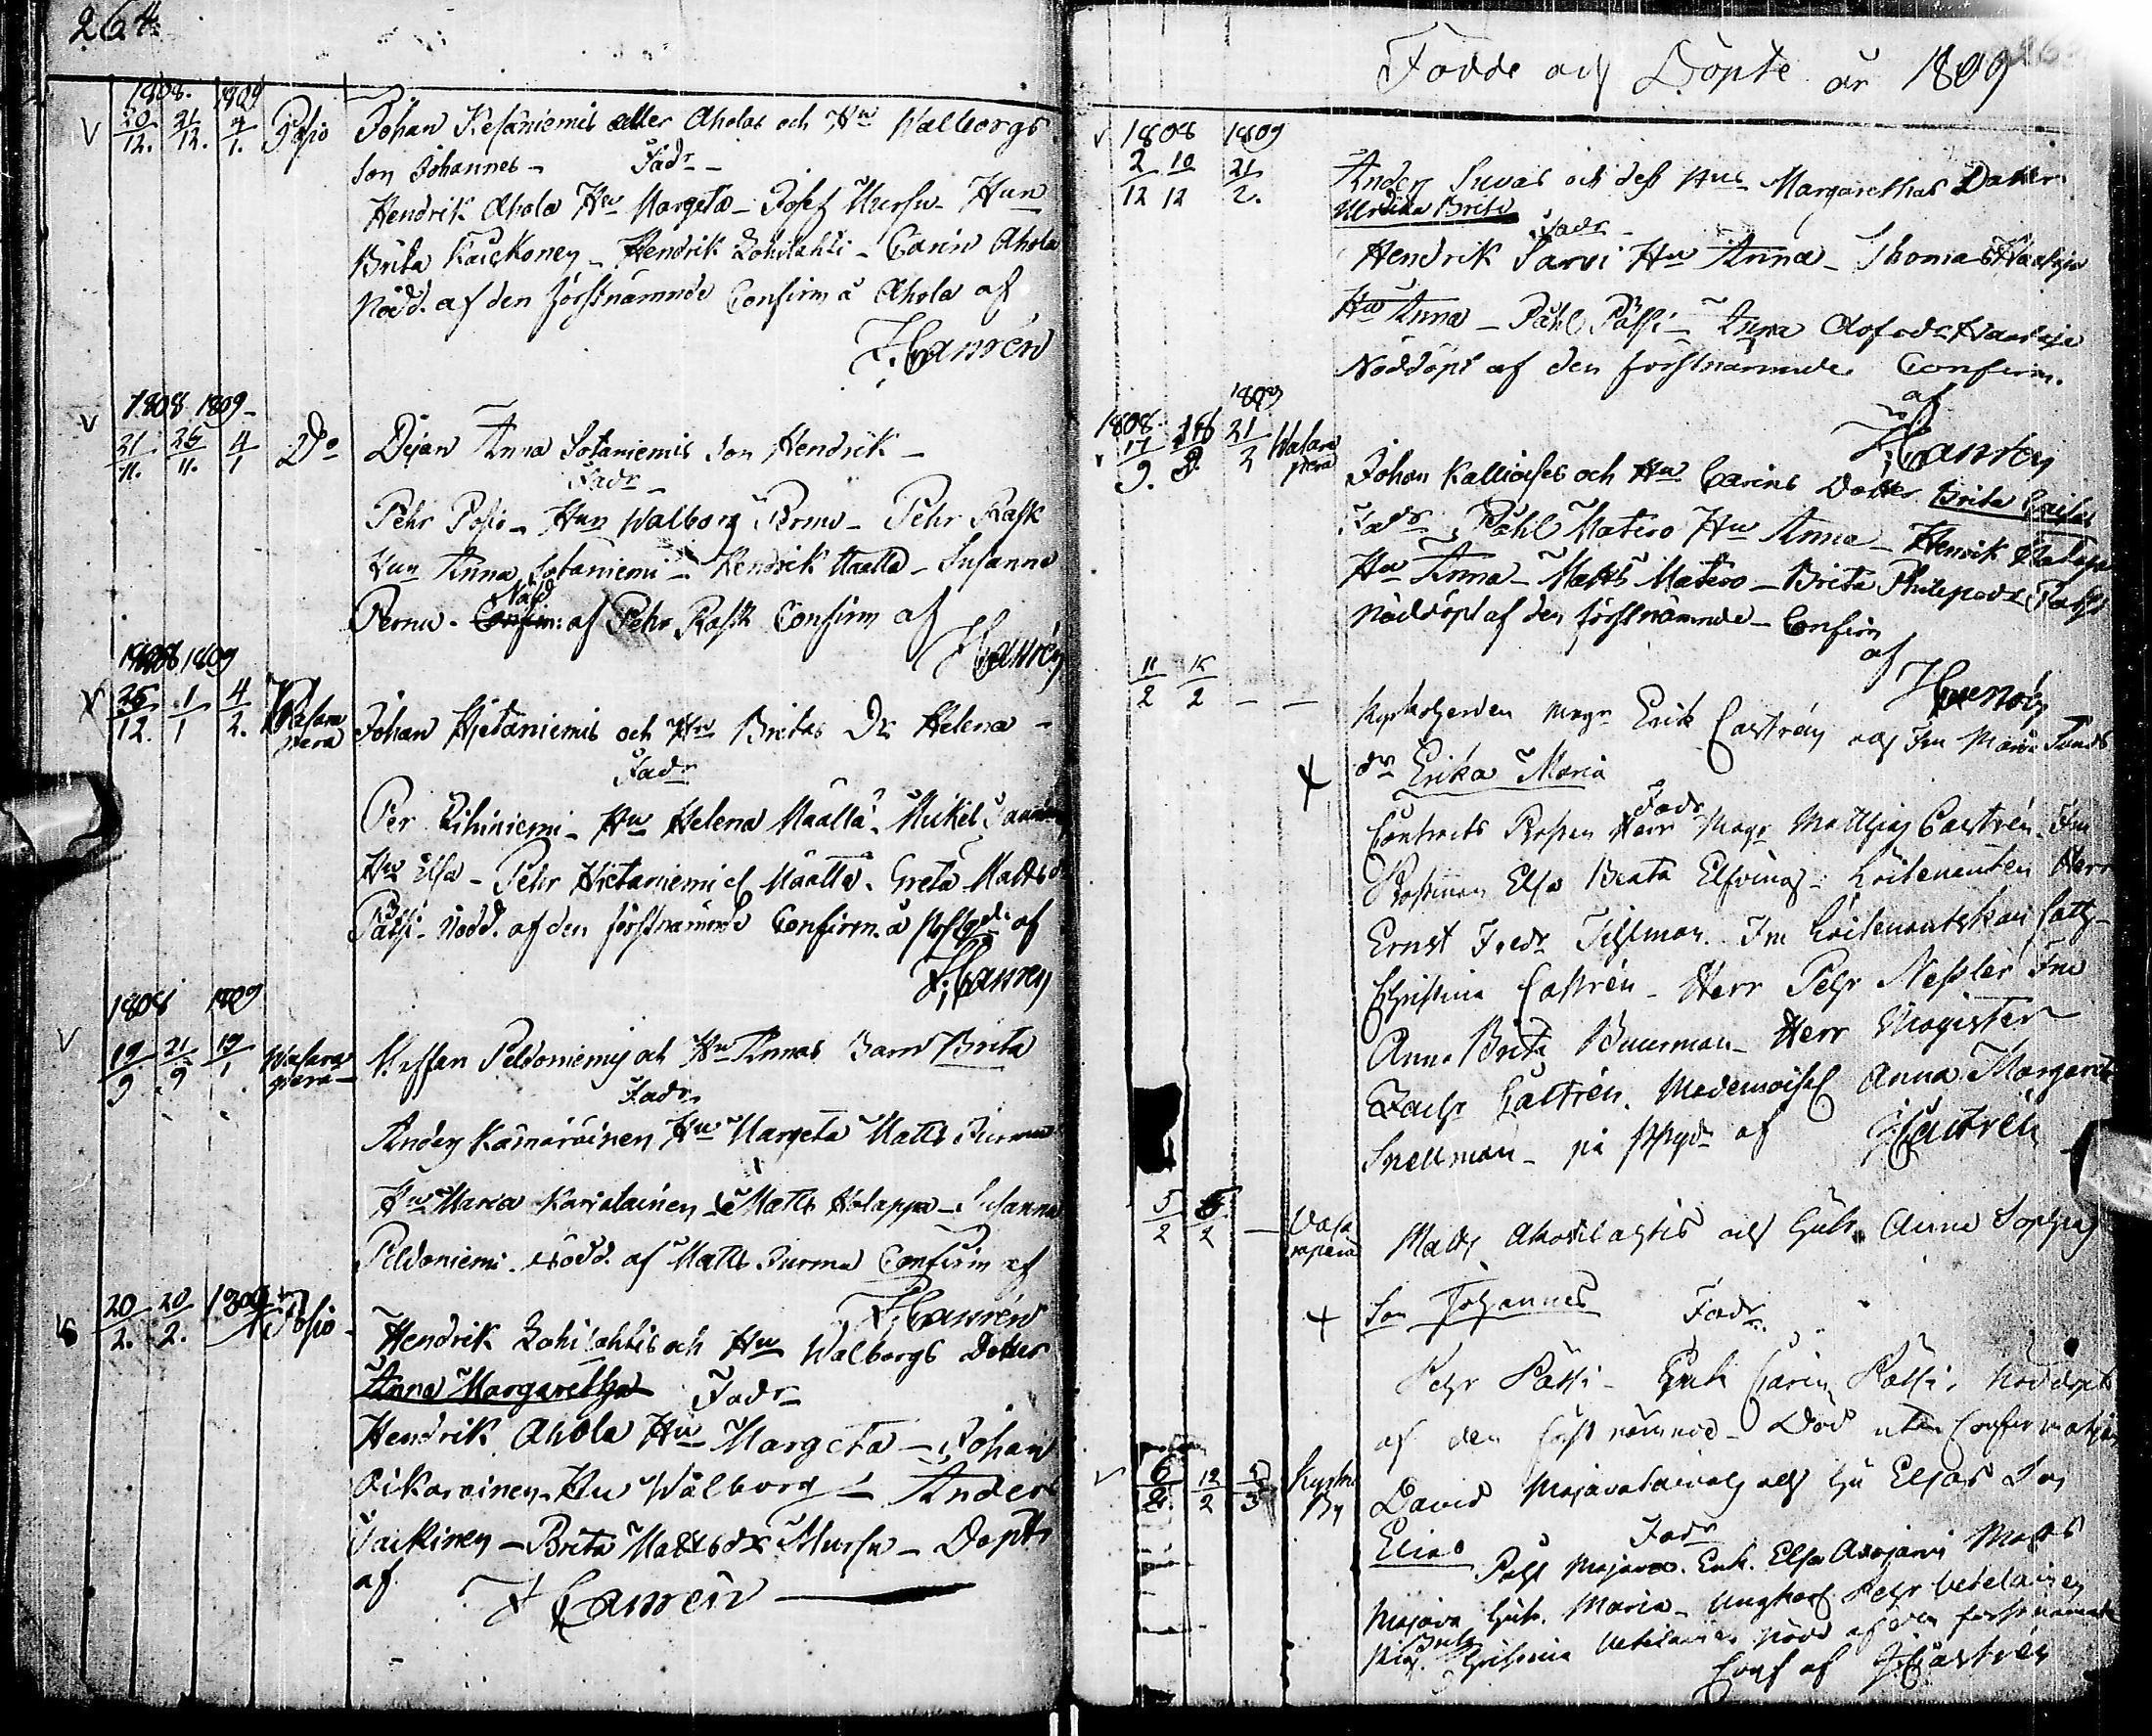 264.
1808. 1809
20/12. 21/12. 4/1. Posio Johan Kesäniemis eller Aholas och Hu Walborgs
Son Johannes - Fadr -
Hendrik Ahola Hu Margeta - Josef Mursu Hun
Brita Kaickonen - Hendrik Lohilahti - Carin Ahola
Nödd. af den förstnämnde Confirm å Ahola af
1808 1809 -
21/11. 25/11. 4/1 Do Pigan Anna Sotaniemis Son Hendrik -
Fadr -
Pehr Posio - Hun Walborg Pernu - Pehr Rask
Hun Anna Sotaniemi - Hendrik Määttä - Susanna
Nödd
Pernu - Confirm: af Pehr Rask Confirm af
1808 1809
26/12. 1/1 4/2. Wasara pera Johan Hietaniemis och Hu Britas Dr Helena -
Fadr
Per Rihiniemi - Hu Helena Määttä - Mickel
Hu Elsa - Pehr Hietaniemi el Määttä. Greta Matts dr
Pätsi - Nödd. af den förstnämnde Confirm. å af
1808 1809
19/9 21/9 19/1 Wasara pera - Staffan Peldoniemis och Hu Annas Barn Brita
Fadr
Anders Kämäräinen Hu Margeta Matts Purma
Hu Maria Karjalainen - Matts Holappa - Susanna
Peldoniemi. Nödd. af Matts Purma Confirm af
20/2. 20/2. 1809 Posio - Hendrik Lohilahtis och Hu Walborgs Dotter
Anna Margaretha Fadr
Hendrik Ahola Hu Margeta - Johan
Oikarainen - Hu Walborg - Anders
Jäickinen - Brita Mattsdr Mursu - Döpt
af
Födde och Döpte år 1809
1808 1809
2/12 10/12 21/2. Anders Suvas och dess Hus Margarethas Dotter
Ulrika Brita
Fadr -
Hendrik Särvi Hu Anna - Thomas
Hu Anna - Påhl Pätsi - Anna Olofsdr
Nöddöpt af den förstnämnde Confirm.
af
1808 1809
17/9. 21/2 Wasara pera Johan Kallioises och Hu Carins Dotter Brita Caisa
Fadr Påhl Matero Hu Anna - Henrik
Hu Anna - Matts Matero - Brita Philipsdr Pätsi
Nöddöpt af den förstnämnde - Confirm
af
11/2 15/2 - - Kyrkoherden Magr Erik Castrén och Fru Maria
dr Erika Maria
Fadr
Contracts Prosten Herr Magr Matthias Castrén. Fru
Prostinnan Elsa Beata Elfving - Löitenanten Herr
Ernst Fredr Fru Löitenantskan Cath
Christina Castrén - Herr Pehr Nessler Fru
Anna Brita Buurman - Herr Magister
Zachr Castrén. Mademoisel Anna Margareta
Snellman - på af Castrén
5/2 /2 - Wasa rapera Matts Ahovilahtis och Hust. Anna Sophias
Son Johannes Fadr
Pehr Pätsi - Enk Carin Pätsi. Nöddöpt
af den först nämnde - Död utan Confirmation
6/2. 12/2 5/3 Kyrko By David Majavataivals och Hu Elsas Son
Elias Fadr
Påhl Majava. Enk. Elsa Matts
Majava Hust. Maria - Ungkarl Pehr Vetelainen
Pig. Christina nödd af den förstnämnde
Conf af Castrén